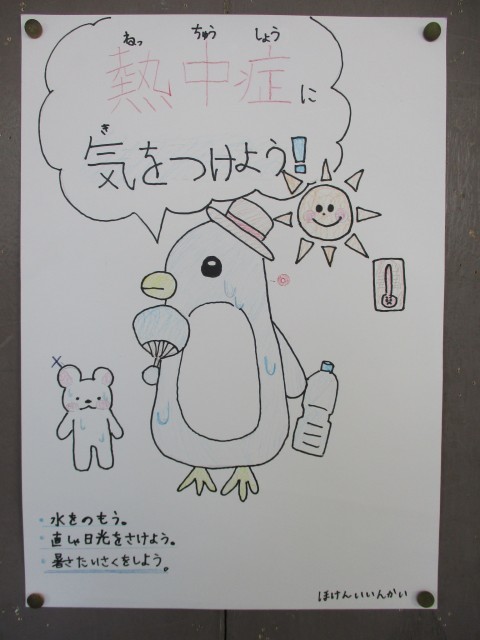 ねっ ちゅう しょう
熱中症に
き
気をつけよう!
・水をのもう。
・直しゃ日光をさけよう。
・暑さたいさくをしよう。
ほけんいいんかい